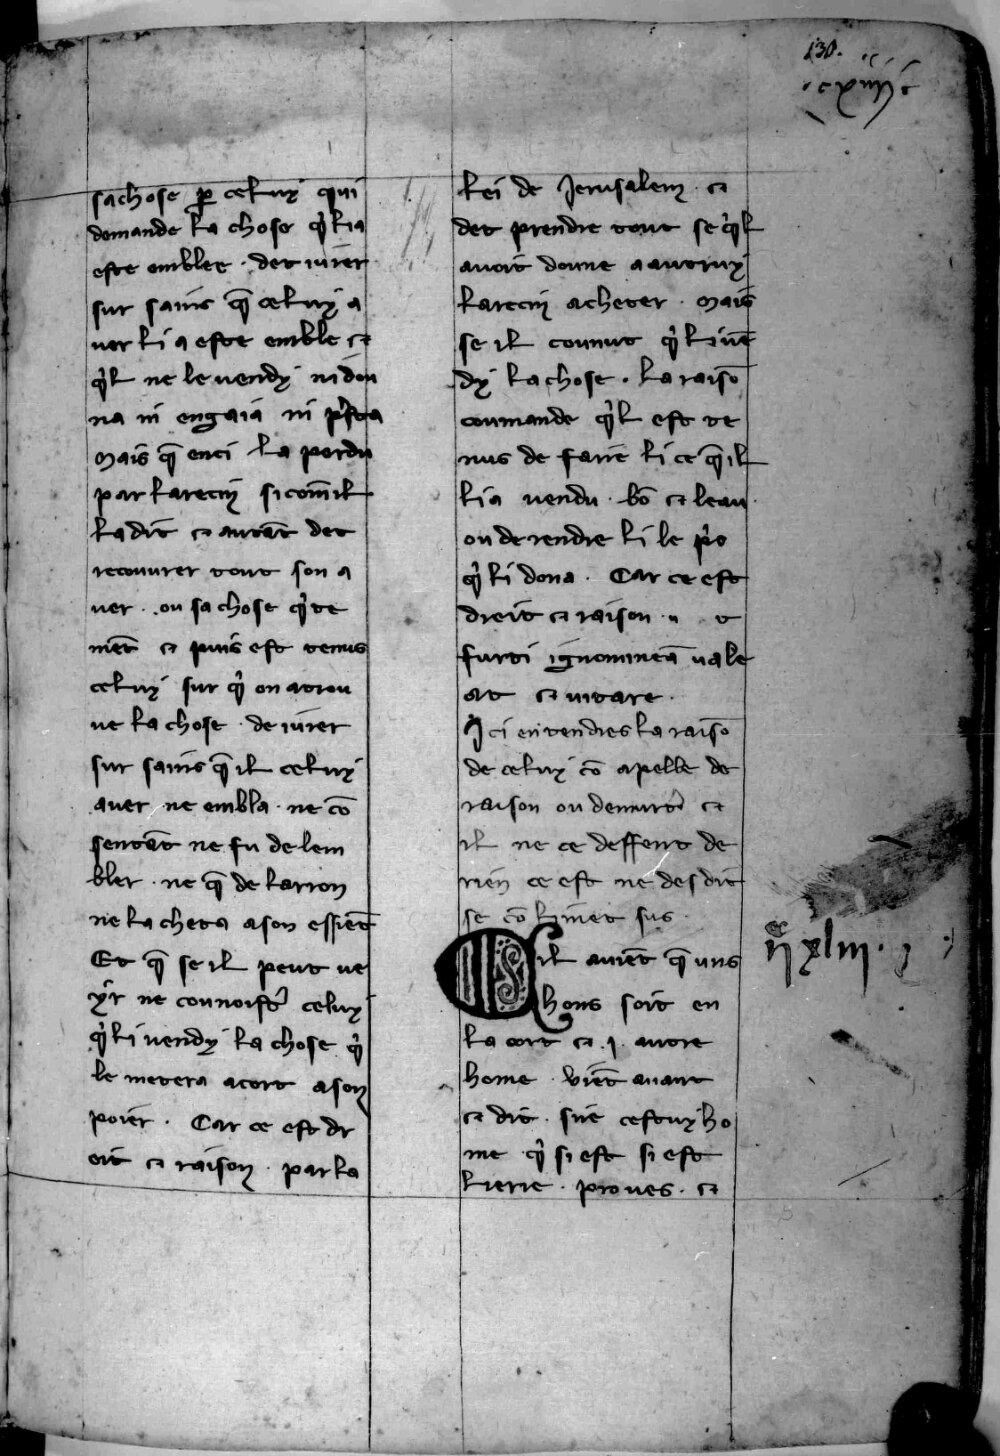 130.
sachose ꝑ celuy qui
demande la chose q̉ lia
este emblee · det iurer
sur sains q̃ celuy a
uer li a este emble ⁊
q̉l ne le uendy ni don
na ni engaia ni p̉sta
mais q̃ enci la perdu
par larecin si com̃ il
la dit ⁊ autãt det
recouurer tout son a
uer · ou sa chose q̉te
mẽt ⁊ puis est tenus
celuy sur q̉ on a trou
ue la chose · de iurer
sur sains q̃ il celuy
auer ne embla · ne cõ
sentãt ne fu de lem
bler · ne q̃ de larron
ne lacheta a son essiẽt
Et q̃ se il peut ue
yr ne connoistr̉ celuy
q̉ li uendy la chose q̉
le metera a cort a son
poier · Car ce est dr
oit ⁊ raison · par la
lei de Jerusalem · ⁊
det prendre tout se q̉l
auoit doune a autruy
larecin acheter · Mais
se il counut q̉ li uẽ
dy la chose · la raisõ
coumande q̉l est te
nus de faire li ce q̃ il
li a uendu · bõ ⁊ leau
ou de rendre li le p̉s
q̉ li dona · Car ce est
dreit ⁊ raison ·
furti ignomineã uale
at ⁊ uitare ·
Ici entendres la raisõ
de celuy cõ apelle de
raison ou demurtr̉ ⁊
il ne ce deffent de
rien ce est ne desdit
se cõ li met sus ·
Sil auiẽt q̃ uns
hons soit en
la cort ⁊ · j · autre
home · viẽt auant
⁊ dit · sire cestuy ho
me q̉ si est si est
lierre · proues · ⁊